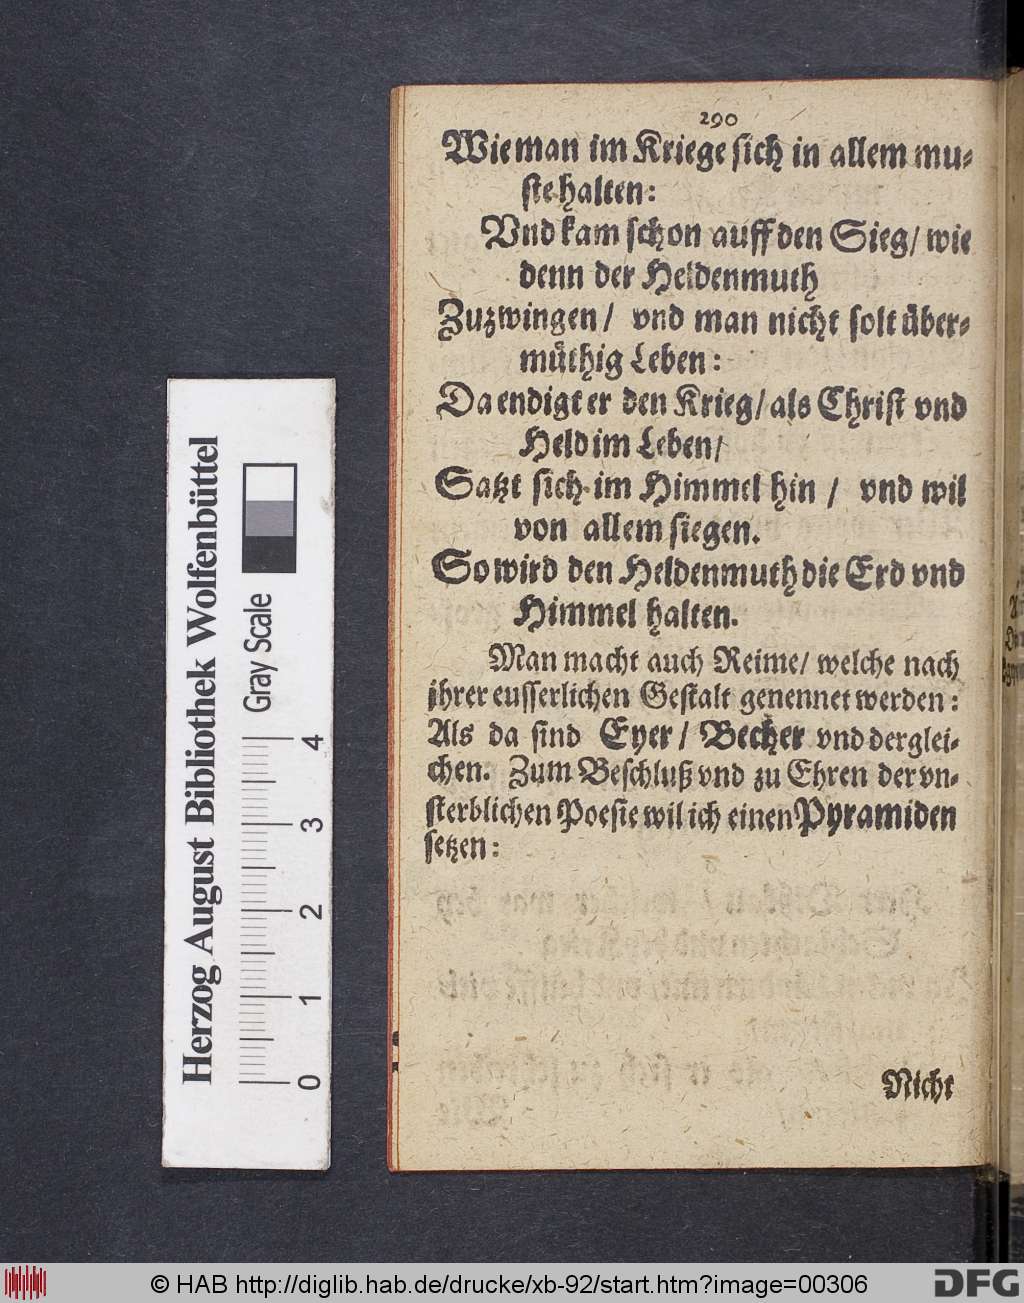 290
Wie man im Kriege sich in allem mu-
ste halten:
Vnd kam schon auff den Sieg/ wie
denn der Heldenmuth
Zuzwingen/ vnd man nicht solt über-
müthig Leben:
Da endigt er den Krieg/ als Christ vnd
Held im Leben/
Satzt sich im Himmel hin / vnd wil
von allem siegen.
So wird den Heldenmuth die Erd vnd
Himmel halten.
Man macht auch Reime/ welche nach
jhrer eusserlichen Gestalt genennet werden:
Als da sind Eyer/ Becher vnd derglei-
chen. Zum Beschluß vnd zu Ehren der vn-
sterblichen Poesie wil ich einen Pyramiden
setzen:
Nicht
Herzog August Bibliothek Wolfenbüttel
Gray Scale
0 1 2 3 4
© HAB http://diglib.hab.de/drucke/xb-92/start.htm?image=00306
DFG